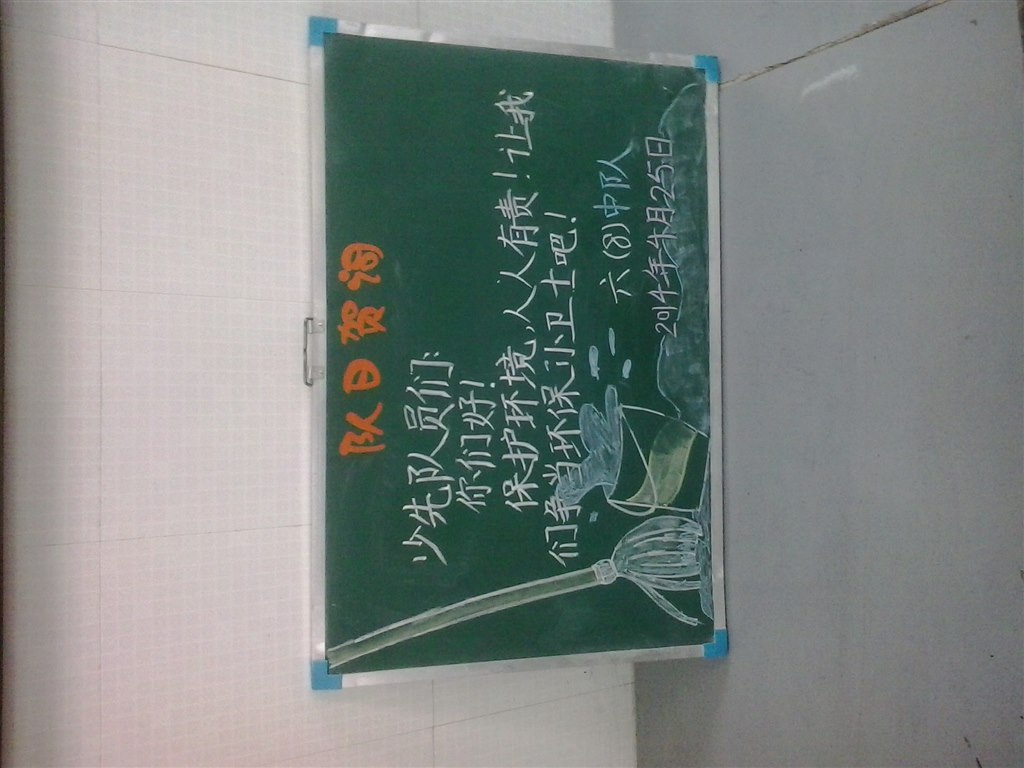 队日贺词
少先队员们:
你们好!
保护环境,人人有责!让我
们争当环保小卫士吧!
六(8)中队
2014年4月25日